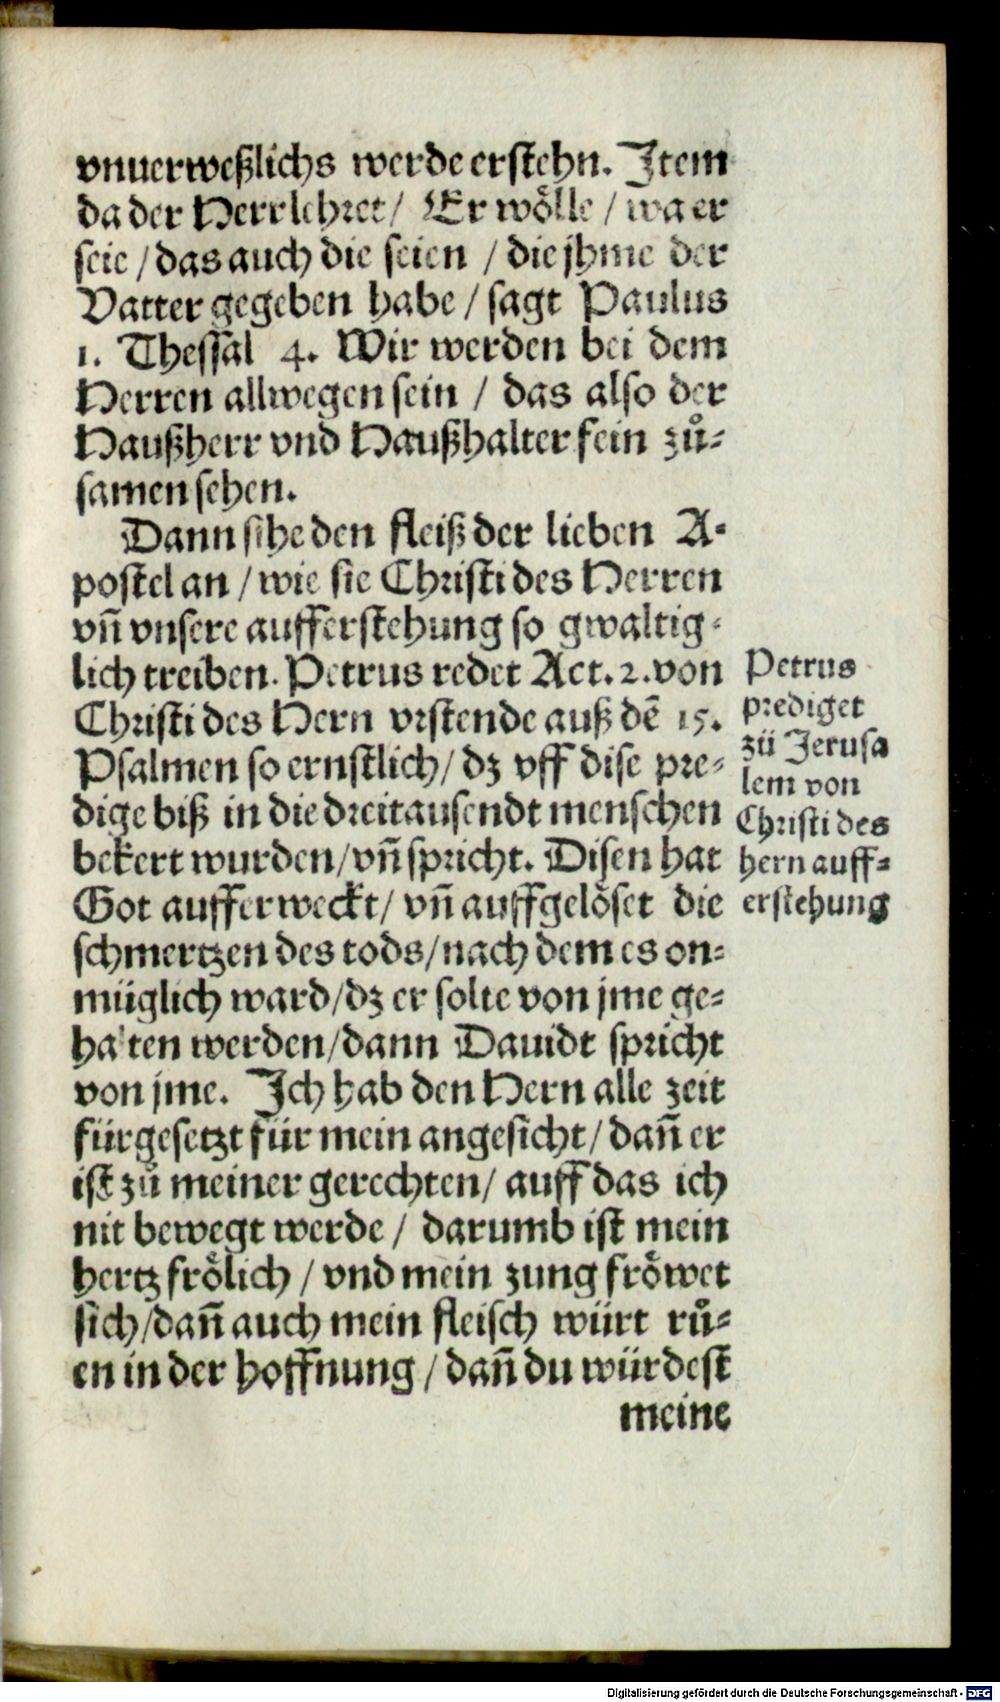 vnuerweßlichs werde erstehn. Jtem
da der Herr lehret / Er wölle / wa er
seie / das auch die seien / die jhme der
Vatter gegeben habe / sagt Paulus
1. Thessal 4. Wir werden bei dem
Herren allwegen sein / das also der
Haußherr vnd Haußhalter fein zů-
samen sehen.
Dann sihe den fleiß der lieben A-
postel an / wie sie Christi des Herren
vñ vnsere aufferstehung so gwaltig-
lich treiben. Petrus redet Act. 2. von
Christi des Hern vrstende auß dē 15.
Psalmen so ernstlich / dz vff dise pre-
dige biß in die dreitausendt menschen
bekert wurden / vñ spricht. Disen hat
Got aufferweckt / vñ auffgelöset die
schmertzen des tods / nach dem es on-
müglich ward / dz er solte von jme ge-
halten werden / dann Dauidt spricht
von jme. Jch hab den Hern alle zeit
fürgesetzt für mein angesicht / dañ er
ist zů meiner gerechten / auff das ich
nit bewegt werde / darumb ist mein
hertz frölich / vnd mein zung fröwet
sich / dañ auch mein fleisch würt rů-
en in der hoffnung / dañ du würdest
meine
Petrus
prediget
zü Jerusa
lem von
Christi des
hern auff-
erstehung
Digitalisierung gefördert durch die Deutsche Forschungsgemeinschaft - DFG